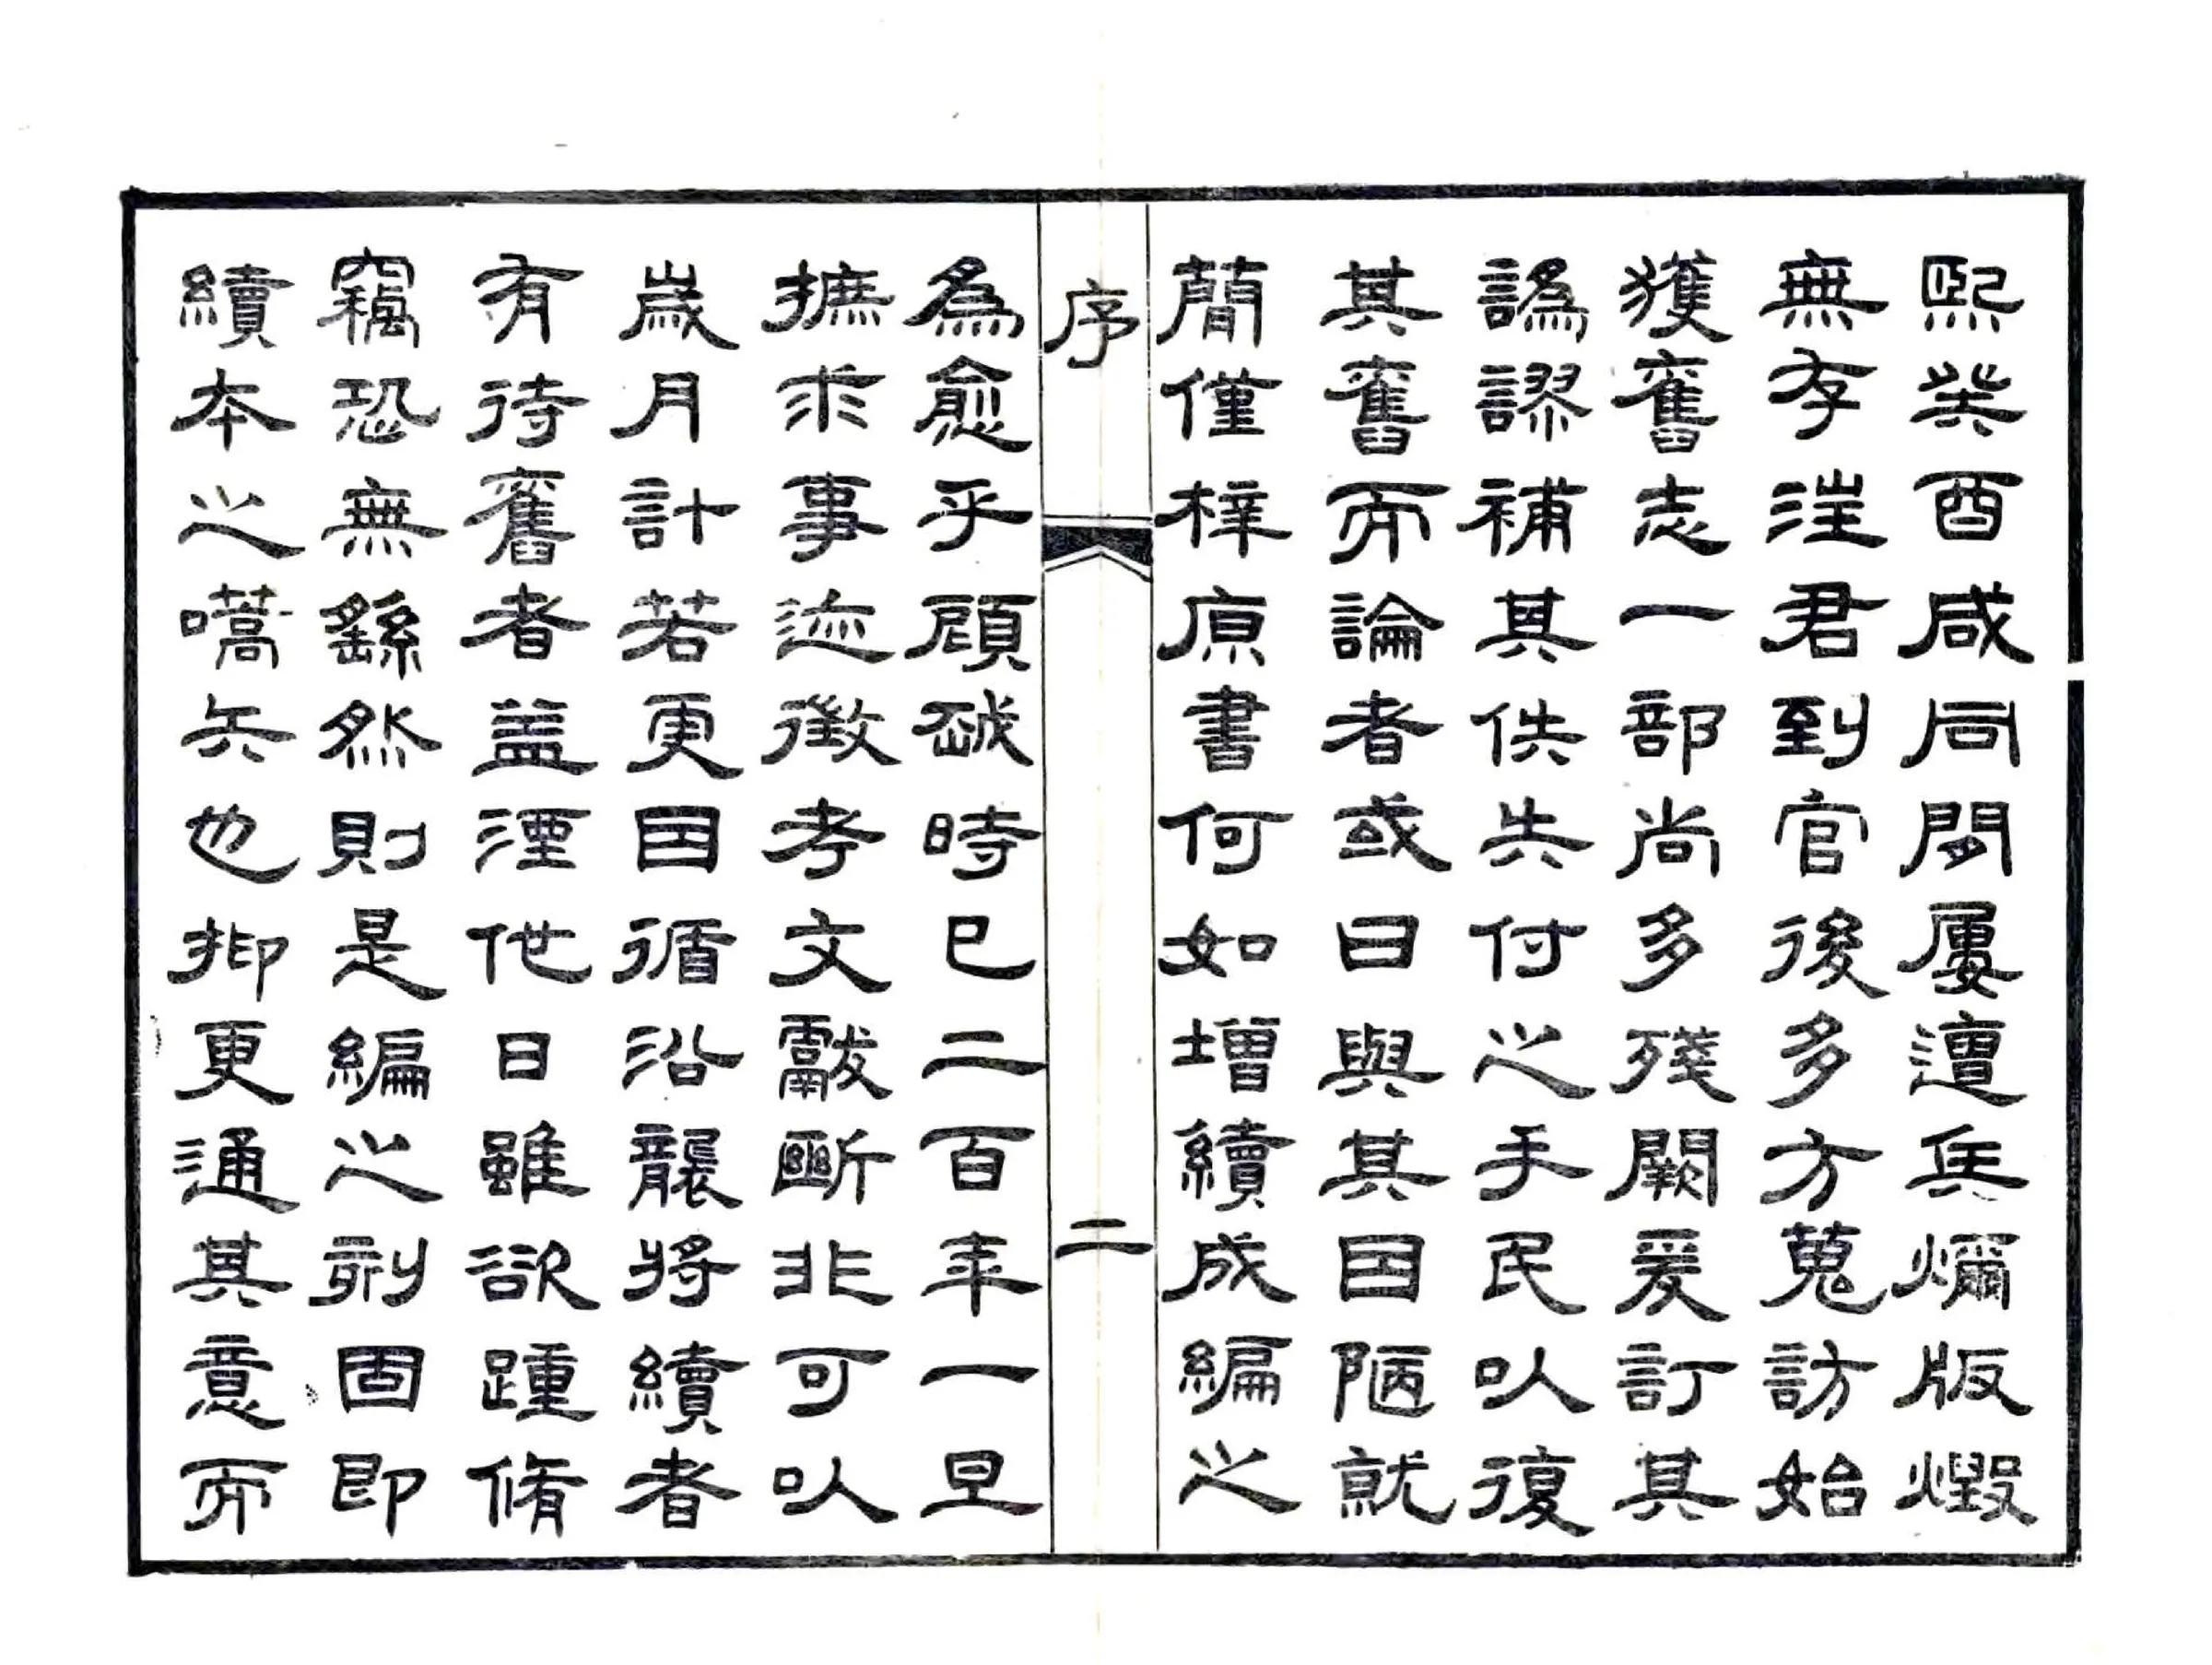 熙癸酉咸同閒屢遭兵燹版燬
無存洼君到官後多方蒐訪始
獲舊志一部尚多殘闕爰訂其
譌謬補其佚失付之手民以復
其舊而論者或曰與其因陋就
簡僅梓原書何如增續成編之
序
二
為愈乎顧茲時已二百年一旦
摭求事迹徵考文獻斷非可以
歲月計若更因循沿襲將續者
有待舊者益湮他日雖欲踵脩
竊恐無繇然則是編之刻固即
續本之嚆矢也抑更通其意而